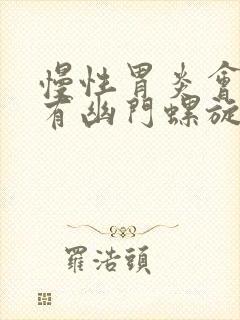 慢性胃炎會
有幽門螺旋
羅浩頭